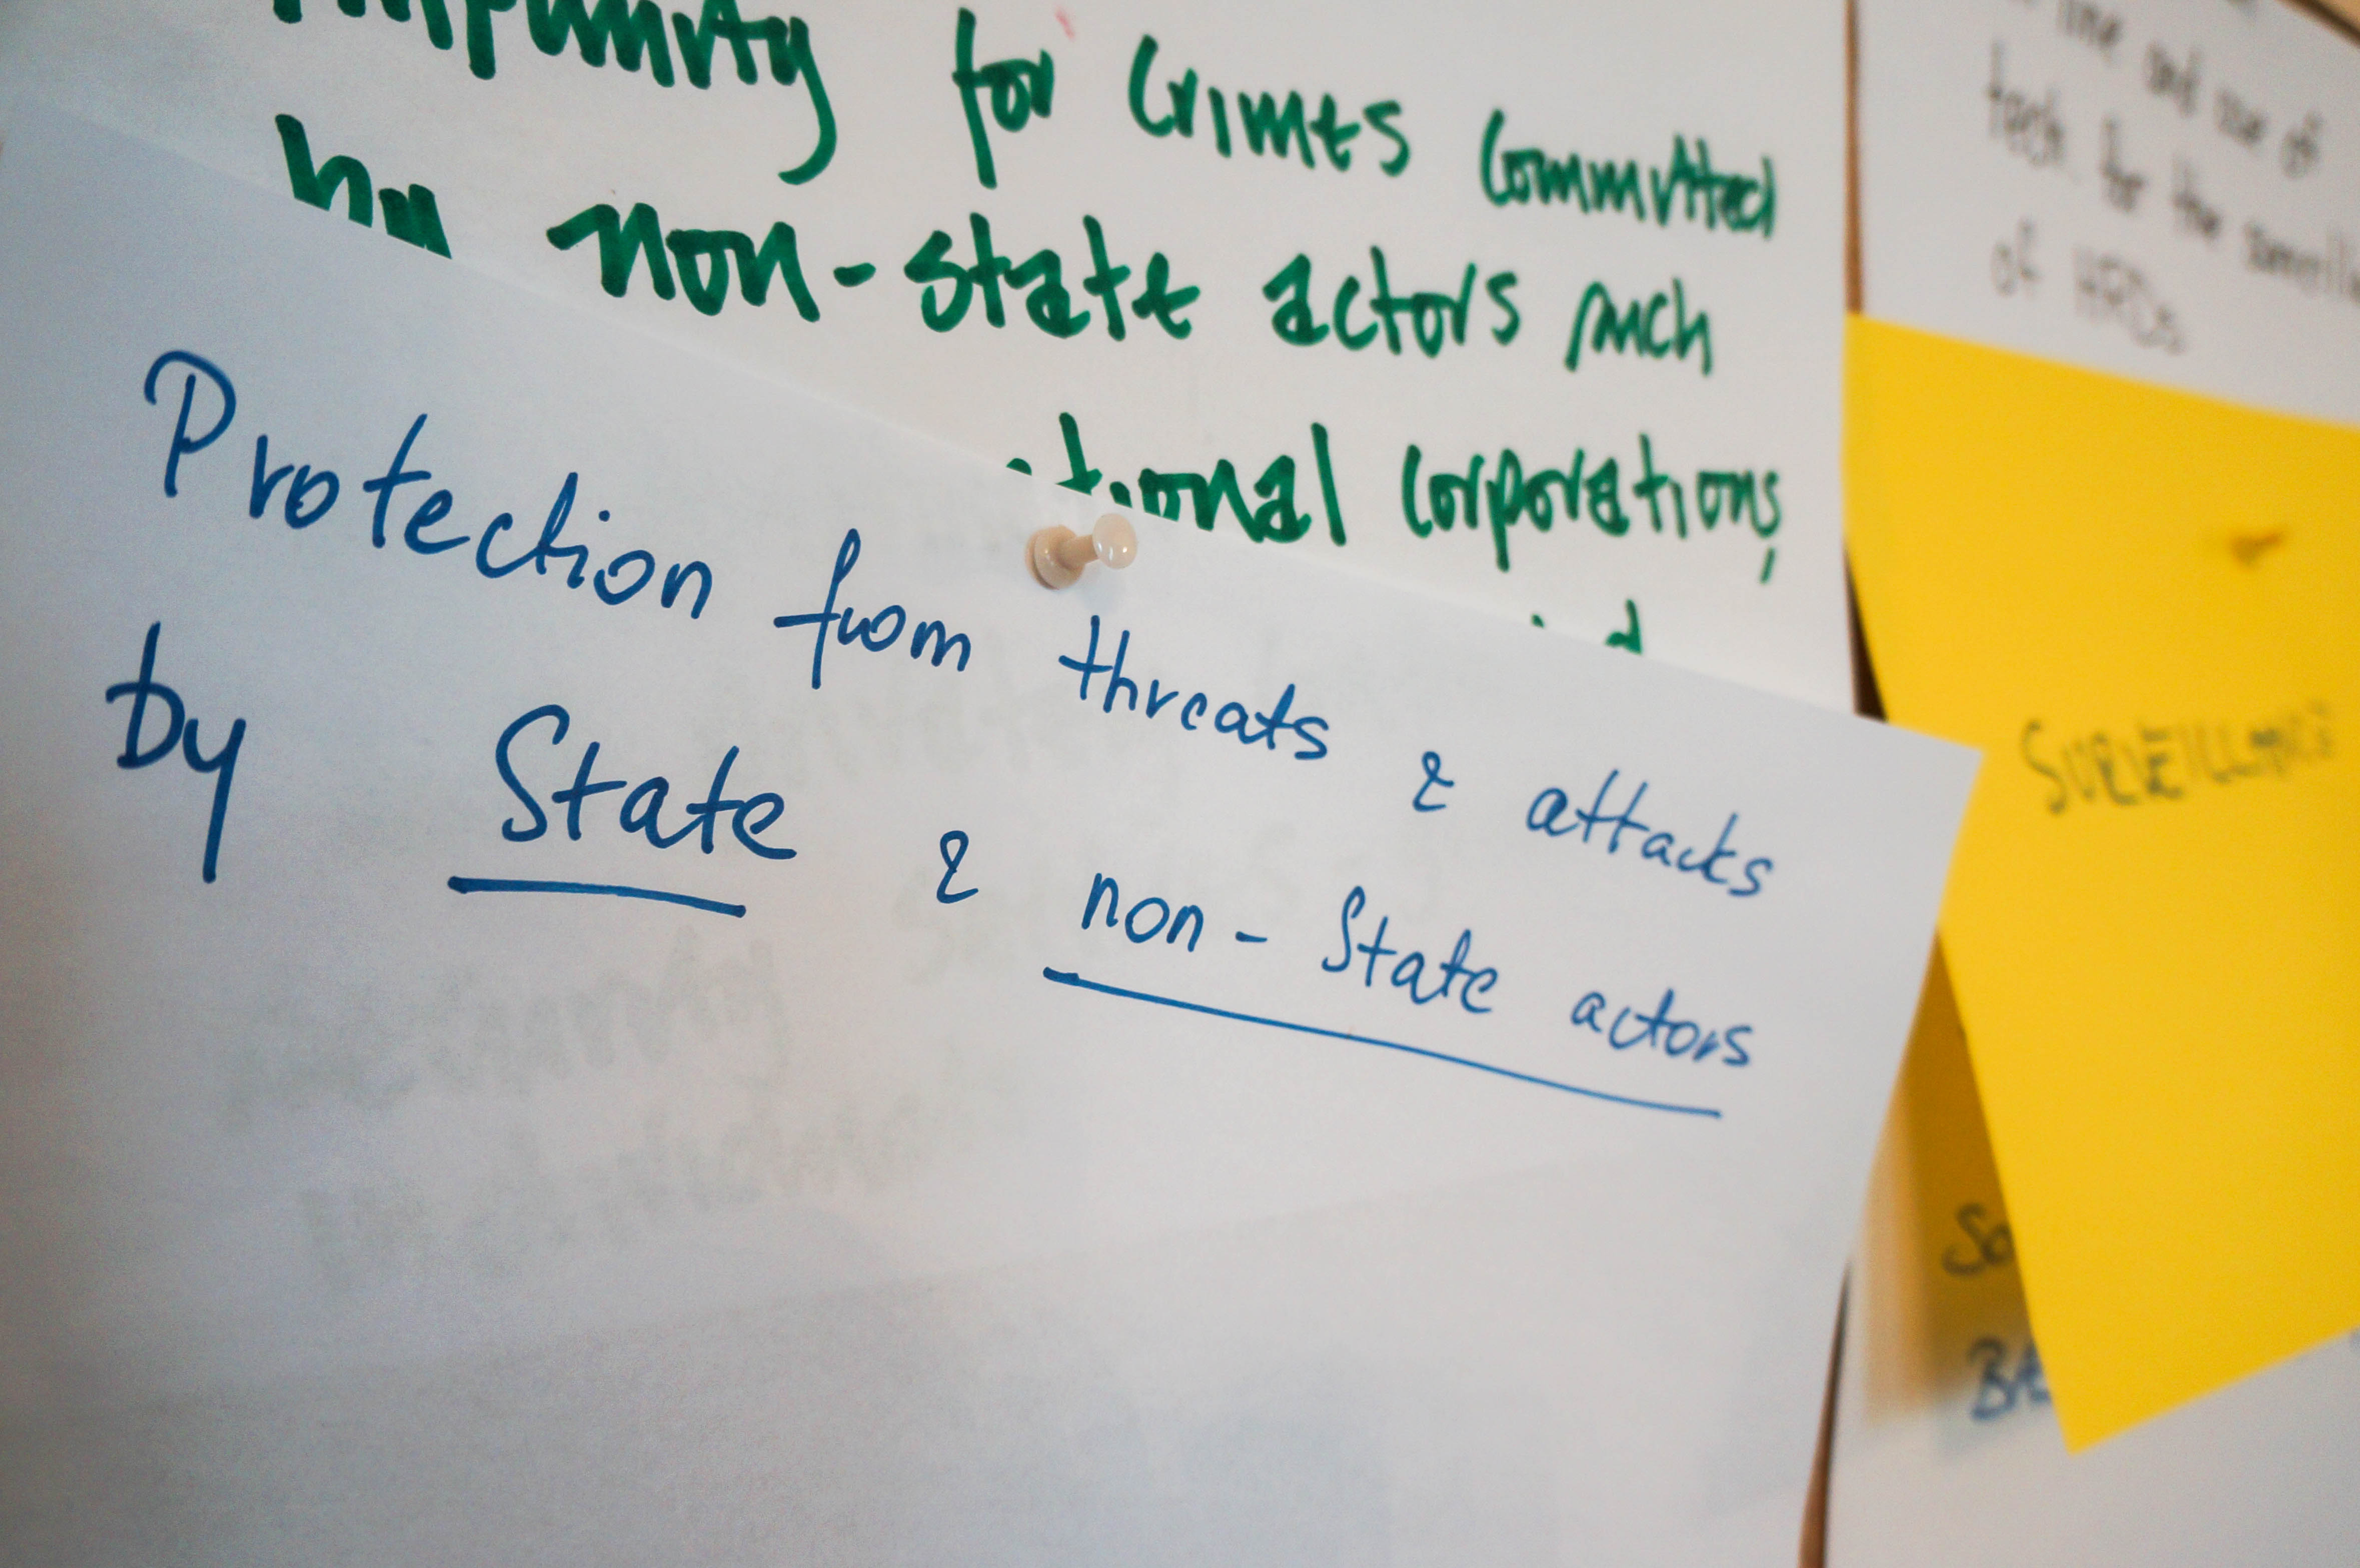 Impunity for crimes committed
by non-state actors such
tional corporations,
Protection from threats & attacks
by State & non-State actors
and use of
tech for the
of HRDs
SURVEILLANCE
So
BA